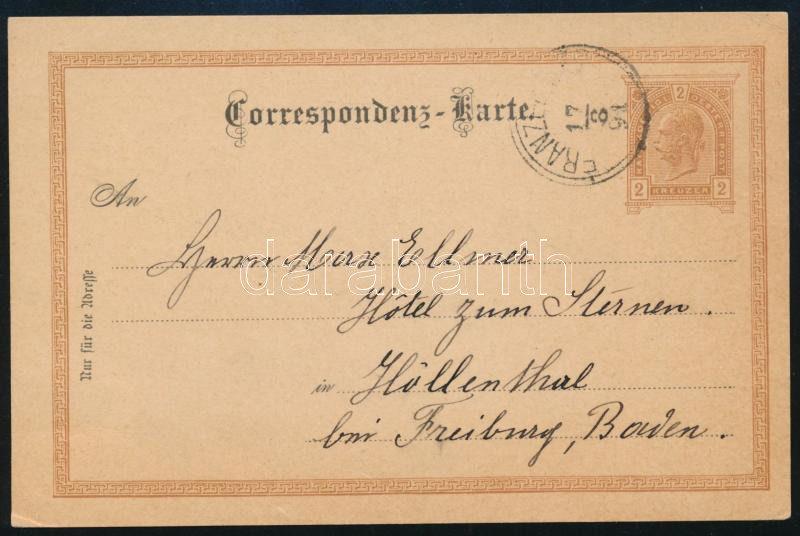 Correspondenz-Karte.
2
KREUZER
2 2
FRANZ
17
8
An
Herrn Max Ellmer
Hôtel zum Sternen.
in Höllenthal
bei Freiburg, Baden.
Nur für die Adresse
darabanth